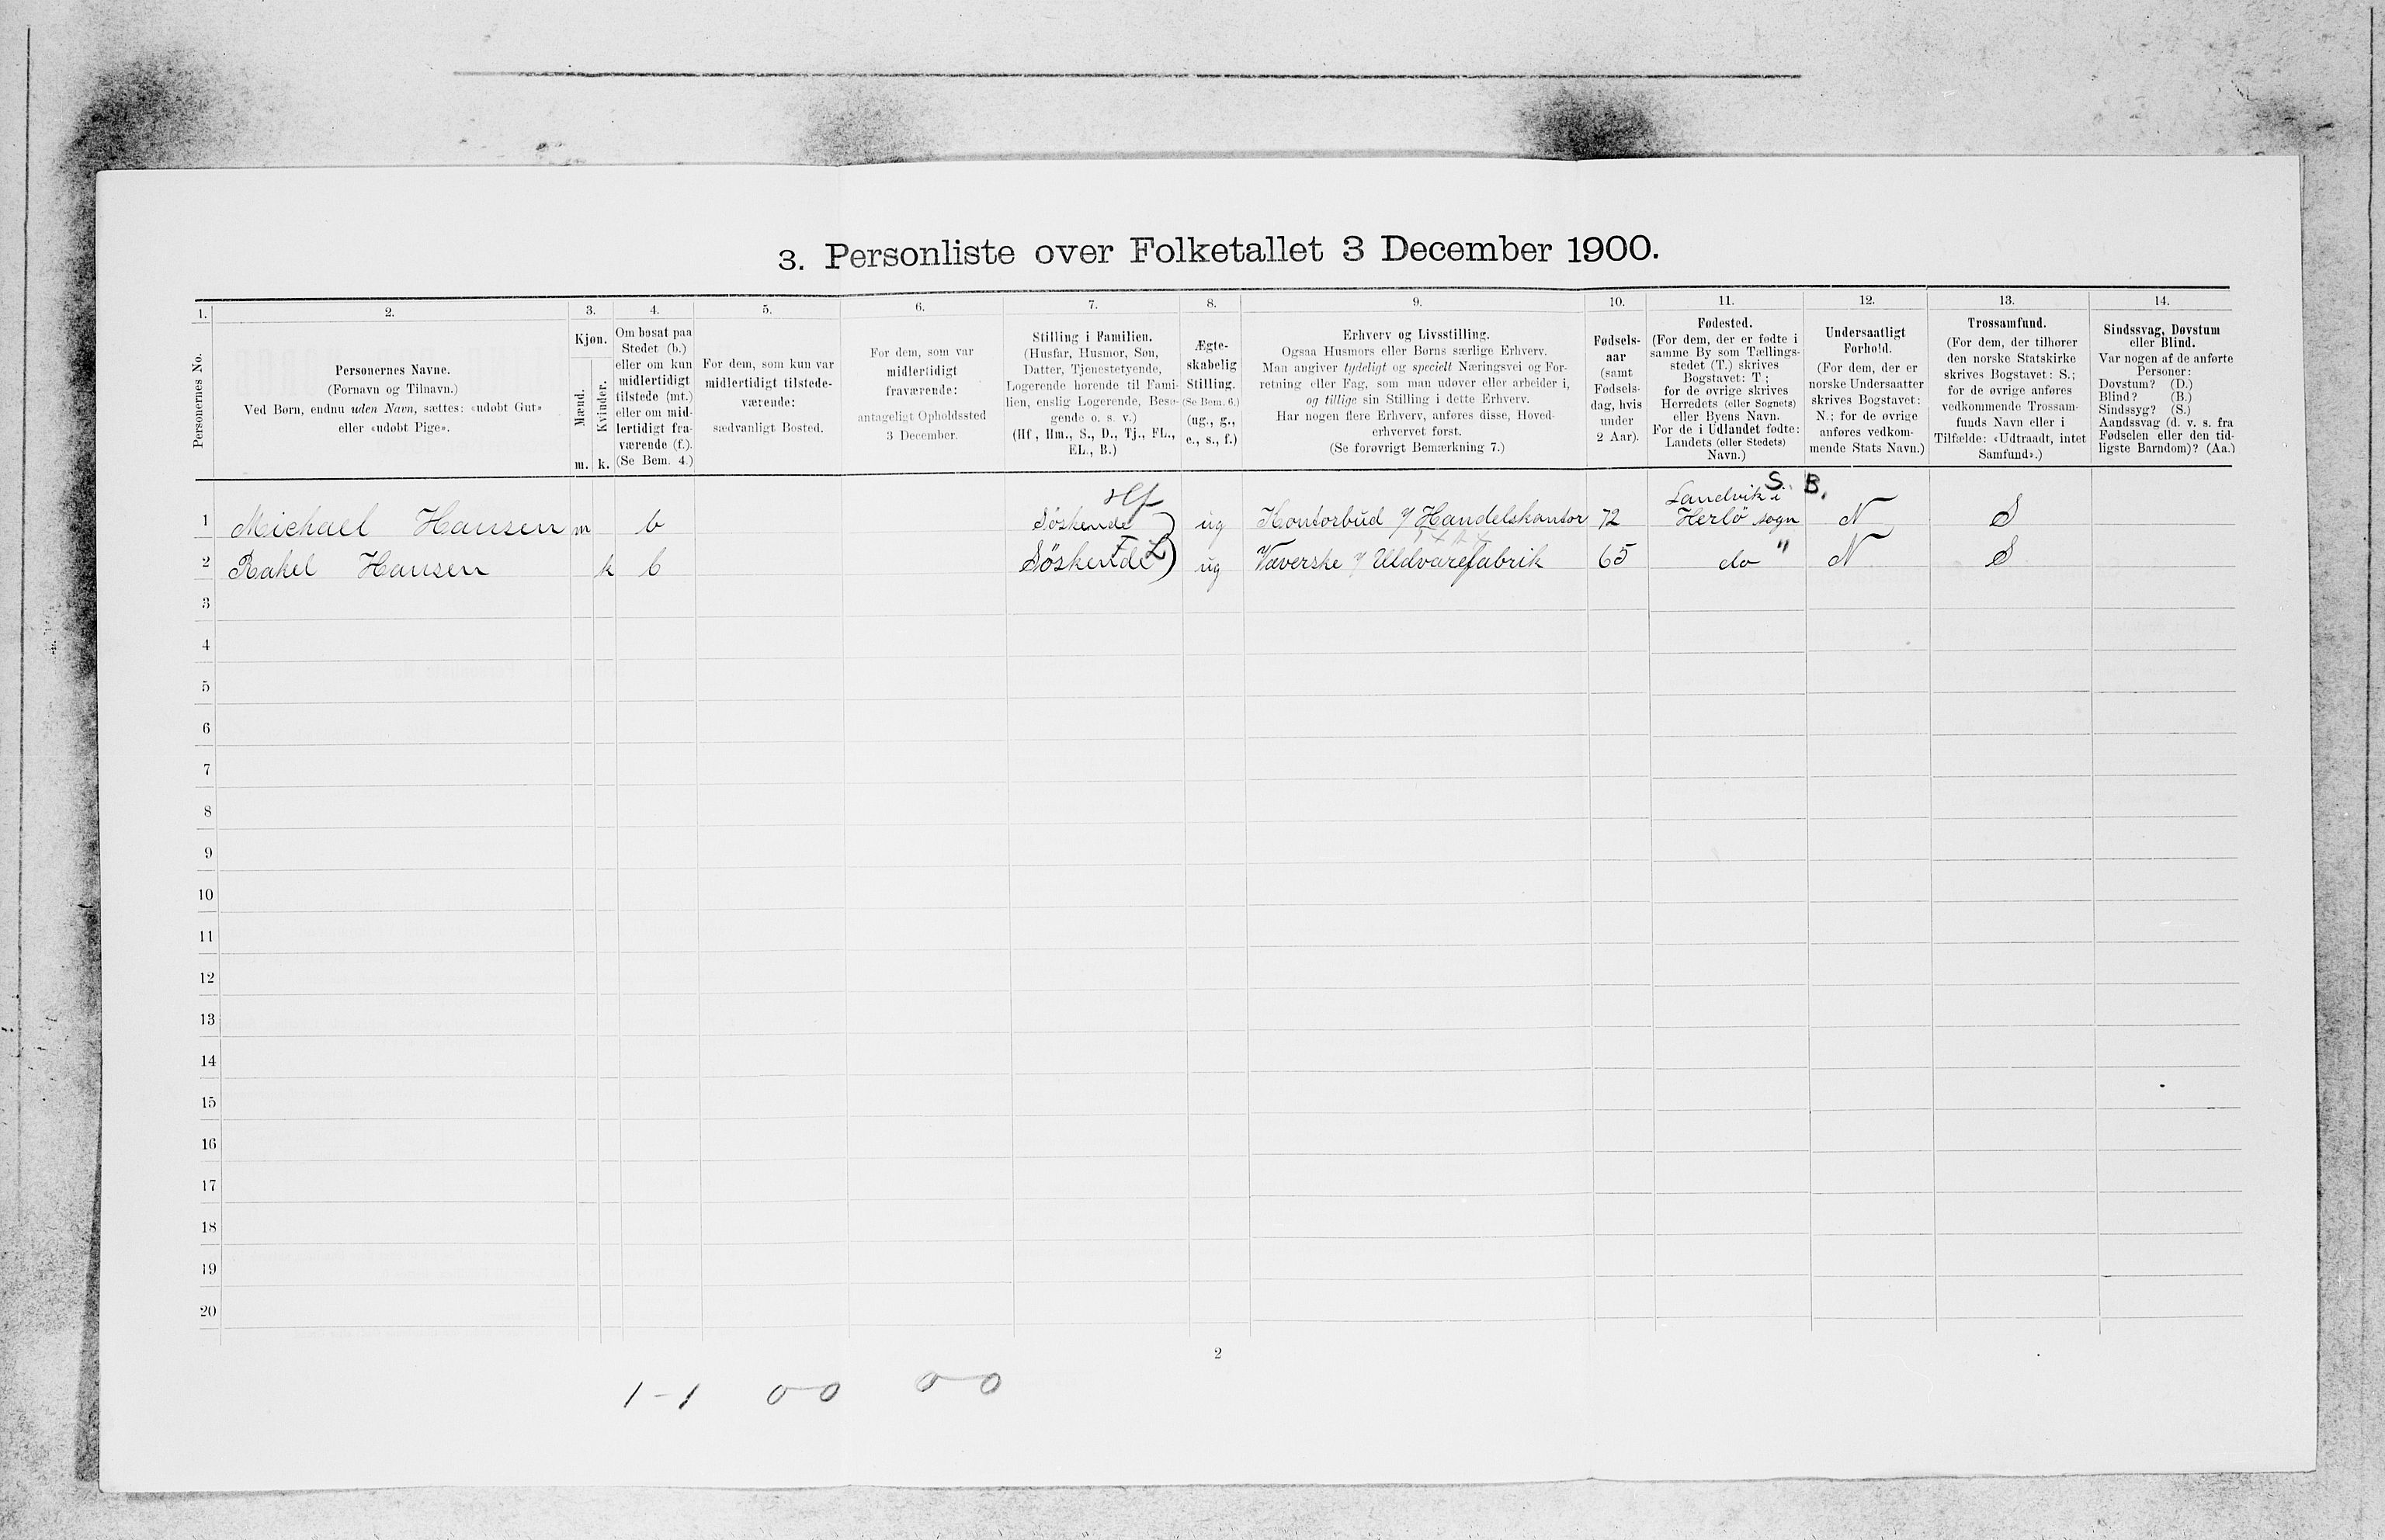 3. Personliste over Folketallet 3 December 1900.
1. 2. 3. 4. 5. 6. 7. 8. 9. 10. 11. 12. 13. 14.
Personernes No.
Personernes Navne.
(Fornavn og Tilnavn.)
Ved Børn, endnu uden Navn, sættes: «udøbt Gut»
eller «udøbt Pige».
Kjøn.
Mænd.
Kvinder.
m. k.
Om bosat paa
Stedet (b.)
eller om kun
midlertidigt
tilstede (mt.)
eller om mid-
lertidigt fra-
værende (f.).
(Se Bem. 4.)
For dem, som kun var
midlertidigt tilstede-
værende:
sædvanligt Bosted.
For dem, som var
midlertidigt
fraværende:
antageligt Opholdssted
3 December.
Stilling i Familien.
(Husfar, Husmor, Søn,
Datter, Tjenestetyende,
Logerende hørende til Fami-
lien, enslig Logerende, Besø-
gende o. s. v.)
(Hf., Hm., S., D., Tj., FL.,
EL., B.)
Ægte-
skabelig
Stilling.
(Se Bem. 6.)
(ug., g.,
e., s., f.)
Erhverv og Livsstilling.
Ogsaa Husmors eller Børns særlige Erhverv.
Man angiver tydeligt og specielt Næringsvei og For-
retning eller Fag, som man udøver eller arbeider i,
og tillige sin Stilling i dette Erhverv.
Har nogen flere Erhverv, anføres disse, Hoved-
erhvervet først.
(Se forøvrigt Bemærkning 7.)
Fødsels-
aar
(samt
Fødsels-
dag, hvis
under
2 Aar).
Fødested.
(For dem, der er fødte i
samme By som Tællings-
stedet (T.) skrives
Bogstavet: T.;
for de øvrige skrives
Herredets (eller Sognets)
eller Byens Navn.
For de i Udlandet fødte:
Landets (eller Stedets)
Navn.)
Undersaatligt
Forhold.
(For dem, der er
norske Undersaatter
skrives Bogstavet:
N.; for de øvrige
anføres vedkom-
mende Stats Navn.)
Trossamfund.
(For dem, der tilhører
den norske Statskirke
skrives Bogstavet: S.;
for de øvrige anføres
vedkommende Trossam-
funds Navn eller i
Tilfælde: «Udtraadt, intet
Samfund».)
Sindssvag, Døvstum
eller Blind.
Var nogen af de anførte
Personer:
Døvstum? (D.)
Blind? (B.)
Sindssyg? (S.)
Aandssvag (d. v. s. fra
Fødselen eller den tid-
ligste Barndom)? (Aa.)
Hf S. B.
Landvik i
1 Michael Hansen m b Söskende ug Kontorbud i/ Handelskontor 72 Herlö sogn N S
F L
2 Rakel Hansen k b Söskende ug Væverske i/ Uldvarefabrik 65 do " N S
3
4
5
6
7
8
9
10
11
12
13
14
15
16
17
18
19
20
2
1-1 0-0 0-0